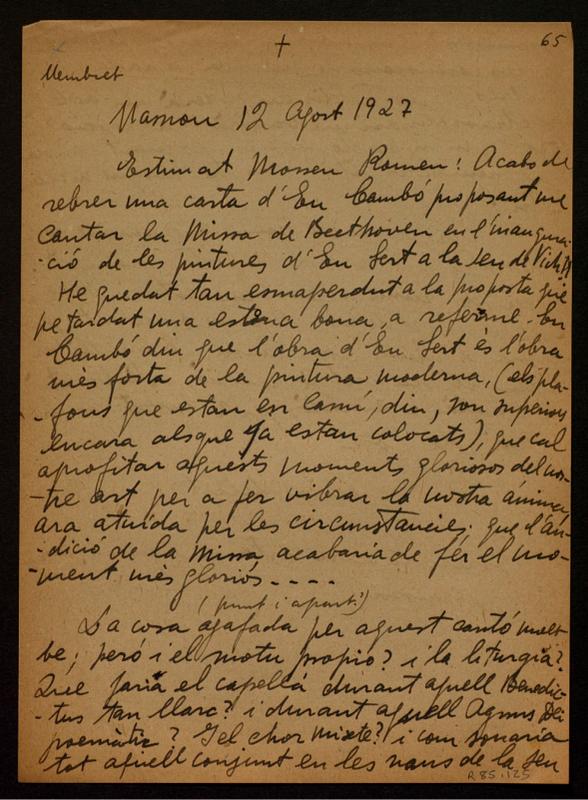 65
Membret
Mamou 12 Agost 1927
Estimat Mossen Romeu! Acabo de
rebrer una carta d'En Cambó proposant me
Cantar la Missa de Beethoven en l'inaugura-
-ció de les pintures d'En Sert a la Seu de Vich!!
He quedat tan esmaperdut a la proposta que
he tardat una estona bona, a referme. En
Cambó diu que l'obra d'En Sert és l'obra
més forta de la pintura moderna, (els pla-
-fons que estan en camí, diu, son superiors
encara als que ja estan colocats), que cal
aprofitar aquests moments gloriosos del nos-
-tre art per a fer vibrar la nostra ánima
ara atuida per les circumstancies; que l'au-
-dició de la Missa acabaria de fér el mo-
-ment més gloriós - - - -
(punt i apart!)
La cosa agafada per aquest cantó molt
be; peró i el motu propio? i la liturgia?
Que faria el capellá durant aquell Benedic-
-tus tan llarc? i durant aquell Agnus Dei
poemátic? I el chor mixte? i com sonaria
tot aquell conjunt en les naus de la Seu
R 85.125